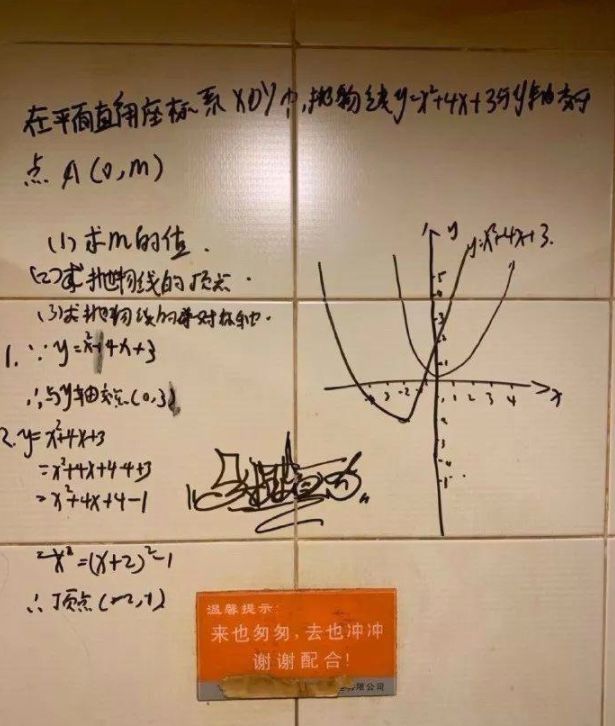 在平面直角座标系XOY中,抛物线y=x²+4x+3与y轴交于
点A(0,m)
(1)求m的值.
(2)求抛物线的顶点.
(3)求抛物线的对称轴.
y=x²+4x+3.
y
x
3 2 1 2 3 4
1. ∵y=x²+4x+3
∴与y轴交点(0,3)
2. y=x²+4x+3
=x²+4x+4-4+3
=x²+4x+4-1
=(x+2)²-1
∴顶点(-2,-1)
温馨提示:
来也匆匆,去也冲冲
谢谢配合!
有限公司